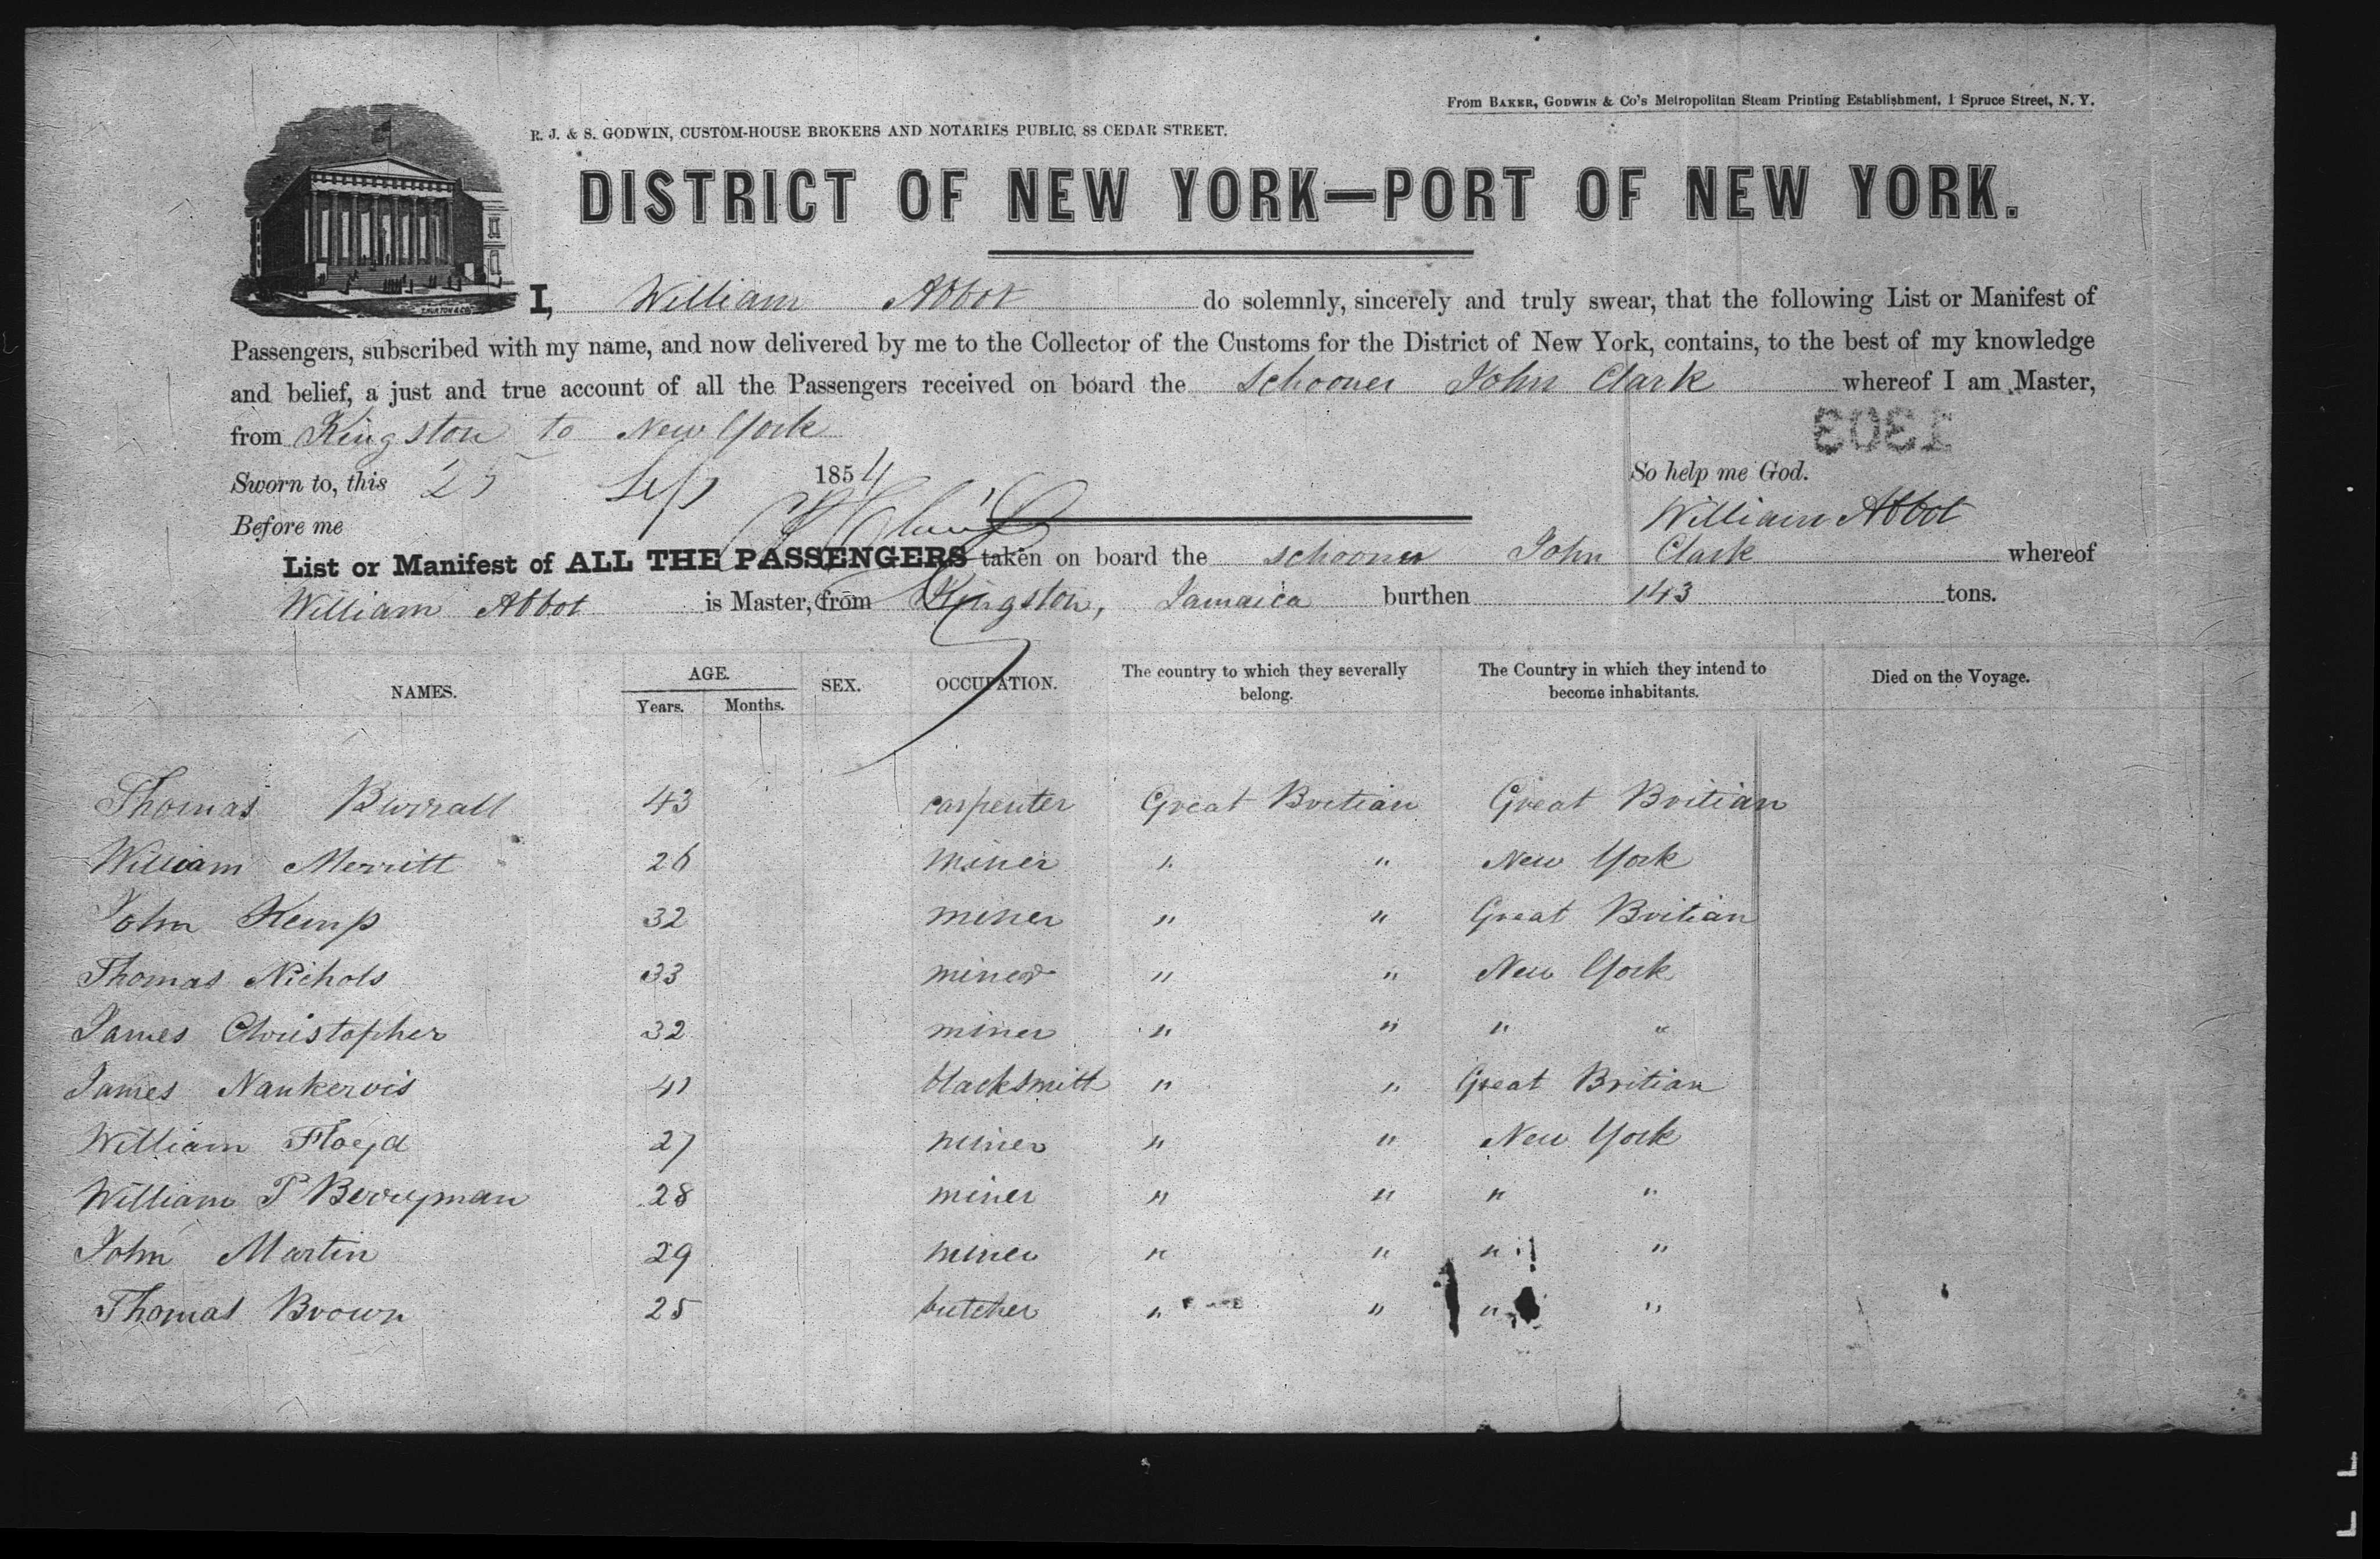 From BAKER, GODWIN & Co's Metropolitan Steam Printing Establishment, 1 Spruce Street, N. Y.
R. J. & S. GODWIN, CUSTOM-HOUSE BROKERS AND NOTARIES PUBLIC, 88 CEDAR STREET.
DISTRICT OF NEW YORK—PORT OF NEW YORK.
I, William Abbot do solemnly, sincerely and truly swear, that the following List or Manifest of
Passengers, subscribed with my name, and now delivered by me to the Collector of the Customs for the District of New York, contains, to the best of my knowledge
and belief, a just and true account of all the Passengers received on board the Schooner John Clark whereof I am Master,
from Kingston to New York
1303
Sworn to, this 25 Sep 1854 So help me God.
Before me William Abbot
List or Manifest of ALL THE PASSENGERS taken on board the schooner John Clark whereof
William Abbot is Master, from Kingston, Jamaica burthen 143 tons.
NAMES. AGE. Years. Months. SEX. OCCUPATION. The country to which they severally belong. The Country in which they intend to become inhabitants. Died on the Voyage.
Thomas Burrall 43 carpenter Great Britian Great Britian
William Merritt 26 miner " " New York
John Kemp 32 miner " " Great Britian
Thomas Nichols 33 miner " " New York
James Christopher 32 miner " " " "
James Nankervis 41 blacksmith " " Great Britian
William Floyd 27 miner " " New York
William P Berryman 28 miner " " " "
John Martin 29 miner " " " "
Thomas Brown 25 butcher " " " "